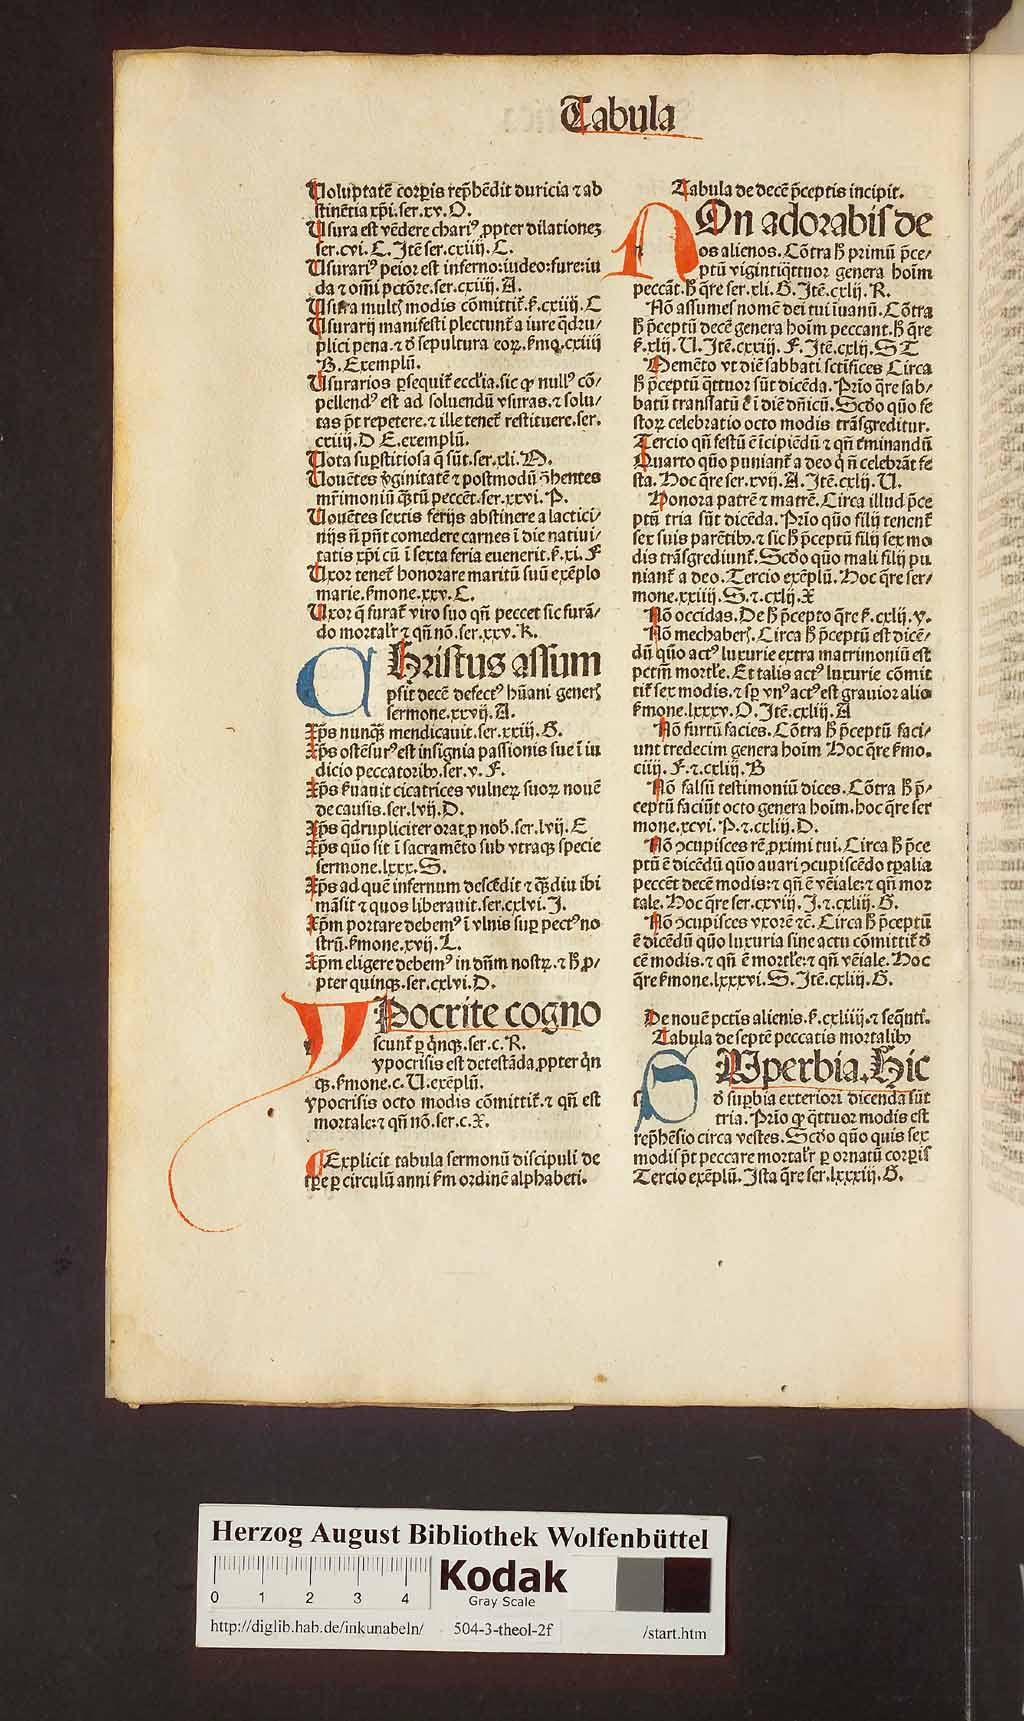 Tabula
Uoluptatē corꝑis rep̄hēdit duricia ⁊ ab
stinētia xp̄i.ser.xv.O.
Usura est vēdere chariꝰ ꝓpter dilationeꝫ
ser.cvi.C.Itē ser.cxiiij.C.
Usurariꝰ peior est inferno:iudeo:fure:iu
da ⁊ om̄i pctōre.ser.cxiiij.A.
Usura multꝭ modis cōmittit᷑.ẜ.cxiiij.C
Usurarij manifesti plectunt᷑ a iure q̄dru/
plici pena.⁊ ꝺ sepultura eoꝝ.ẜmo.cxiiij
B.Exemplū.
Usurarios ꝑsequit᷑ eccl'ia.sic ꝙ nullꝰ cō/
pellendꝰ est ad soluendū vsuras.⁊ solu/
tas p̄t repetere.⁊ ille tenet᷑ restituere.ser.
cxiiij.D E.exemplū.
Uota suꝑstitiosa q̄ sūt.ser.xli.M.
Uouētes v̓ginitatē ⁊ postmodū ↄ̄hentes
mr̄imoniū qn̄tū peccēt.ser.xxvi.P.
Uouētes sextis ferijs abstinere a lactici/
nijs n̄ pn̄t comedere carnes ī die natiui/
tatis xp̄i cū ī sexta feria euenerit.ẜ.xi.F
Uxor tenet᷑ honorare maritū suū exēplo
marie.ẜmone.xxv.C.
Uxor q̄ furat᷑ viro suo qn̄ peccet sic furā/
do mortalr̄ ⁊ qn̄ nō.ser.xxv.K.
CHristus assum
psit decē defectꝰ hūani generꝭ
sermone.xxvij.A.
Xp̄s nunq̄ꝫ mendicauit.ser.xxiij.G.
Xp̄s ostēsurꝰ est insignia passionis sue ī iu
dicio peccatoribꝰ.ser.v.F.
Xp̄s ẜuauit cicatrices vulneꝝ suoꝝ nouē
de causis.ser.lvij.D.
Xp̄s q̄drupliciter orat ꝓ nob̄.ser.lvij.E
Xp̄s quō sit ī sacramēto sub vtraqꝫ specie
sermone.lxxx.S.
Xp̄s ad quē infernum descēdit ⁊ q̄ꝫdiu ibi
māsit ⁊ quos liberauit.ser.cxlvi.I.
Xp̄m portare debemꝰ ī vlnis suꝑ pectꝰ no
strū.ẜmone.xvij.L.
Xp̄m eligere debemꝰ in dn̄m nostꝝ.⁊ ħ ꝓ/
pter quinqꝫ.ser.cxlvi.D.
YPocrite cogno
scunt᷑ ꝑ q̄nqꝫ.ser.c.R.
ypocrisis est detestāda ꝓpter q̄n
qꝫ.ẜmone.c.U.exēplū.
ypocrisis octo modis cōmittit᷑.⁊ qn̄ est
mortale:⁊ qn̄ nō.ser.c.X.
¶Explicit tabula sermonū discipuli de
tp̄e ꝑ circulū anni ẜm ordinē alphabeti.
Tabula de decē p̄ceptis incipit.
NOn adorabis de
os alienos. Cōtra ħ primū p̄ce/
ptū vigintiq̄ttuor genera hoīm
peccāt.ħ q̄re ser.xli.G.Itē.cxlij.R.
Nō assumes nomē dei tui īuanū. Cōtra
ħ p̄ceptū decē genera hoīm peccant.ħ q̄re
ẜ.xlij.U.Itē.cxxiij.F.Itē.cxlij.S T
Memēto vt diē sabbati sctīfices Circa
ħ p̄ceptū q̄ttuor sūt dicēda. Prīo q̄re sab/
batū translatū ē ī diē dn̄icū. Scd̄o quō fe
stoꝝ celebratio octo modis trāsgreditur.
Tercio qn̄ festū ē īcipiēdū ⁊ qn̄ t᷑minandū
Quarto quō puniant᷑ a deo q̄ n̄ celebrāt fe
sta. Hoc q̄re ser.xvij.A.Itē.cxlij.U.
Honora patrē ⁊ matrē. Circa illud p̄ce
ptū tria sūt dicēda. Prīo quō filij tenent᷑
sex suis parētibꝰ.⁊ sic ħ p̄ceptū filij sex mo
dis trāsgrediunt᷑. Scd̄o quō mali filij pu
niant᷑ a deo. Tercio exēplū. Hoc q̄re ser/
mone.xxiiij.S.⁊.cxlij.X
Nō occidas. De ħ p̄cepto q̄re ẜ.cxlij.y.
Nō mechaberꝭ. Circa ħ p̄ceptū est dicē/
dū quō actꝰ luxurie extra matrimoniū est
pctm̄ mortl'e. Et talis actꝰ luxurie cōmit
tit᷑ sex modis.⁊ sꝑ vnꝰ actꝰ est grauior alio
ẜmone.lxxxv.O.Itē.cxliij.A
Nō furtū facies. Cōtra ħ p̄ceptū faci/
unt tredecim genera hoīm Hoc q̄re ẜmo.
ciiij.F.⁊.cxliij.B
Nō falsū testimoniū dices. Cōtra ħ p̄/
ceptū faciūt octo genera hoīm.hoc q̄re ser
mone.xcvi.P.⁊.cxliij.D.
Nō ↄcupisces rē ꝓximi tui. Circa ħ p̄ce
ptū ē dicēdū quō auari ↄcupiscēdo tꝑalia
peccēt decē modis:⁊ qn̄ ē vēiale:⁊ qn̄ mor
tale. Hoc q̄re ser.cxviij.I.⁊.cxliij.G.
Nō ↄcupisces vxorē ⁊c̄. Circa ħ p̄ceptū
ē dicēdū quō luxuria sine actu cōmittit᷑ ꝺ
cē modis.⁊ qn̄ ē mortl'e:⁊ qn̄ vēiale. Hoc
q̄re ẜmone.lxxxvi.S.Itē.cxliij.G.
De nouē pctīs alienis.ẜ.cxliiij.⁊ seq̄nti.
Tabula de septē peccatis mortalibꝰ
SUperbia.Hic
ꝺ suꝑbia exteriori dicenda sūt
tria. Prīo ꝙ q̄ttuor modis est
rep̄hēsio circa vestes. Scd̄o quō quis sex
modis p̄t peccare mortalr̄ ꝑ ornatū corꝑis
Tercio exēplū. Ista q̄re ser.lxxxiij.G.
Herzog August Bibliothek Wolfenbüttel
0 1 2 3 4
Kodak
Gray Scale
http://diglib.hab.de/inkunabeln/ 504-3-theol-2f /start.htm